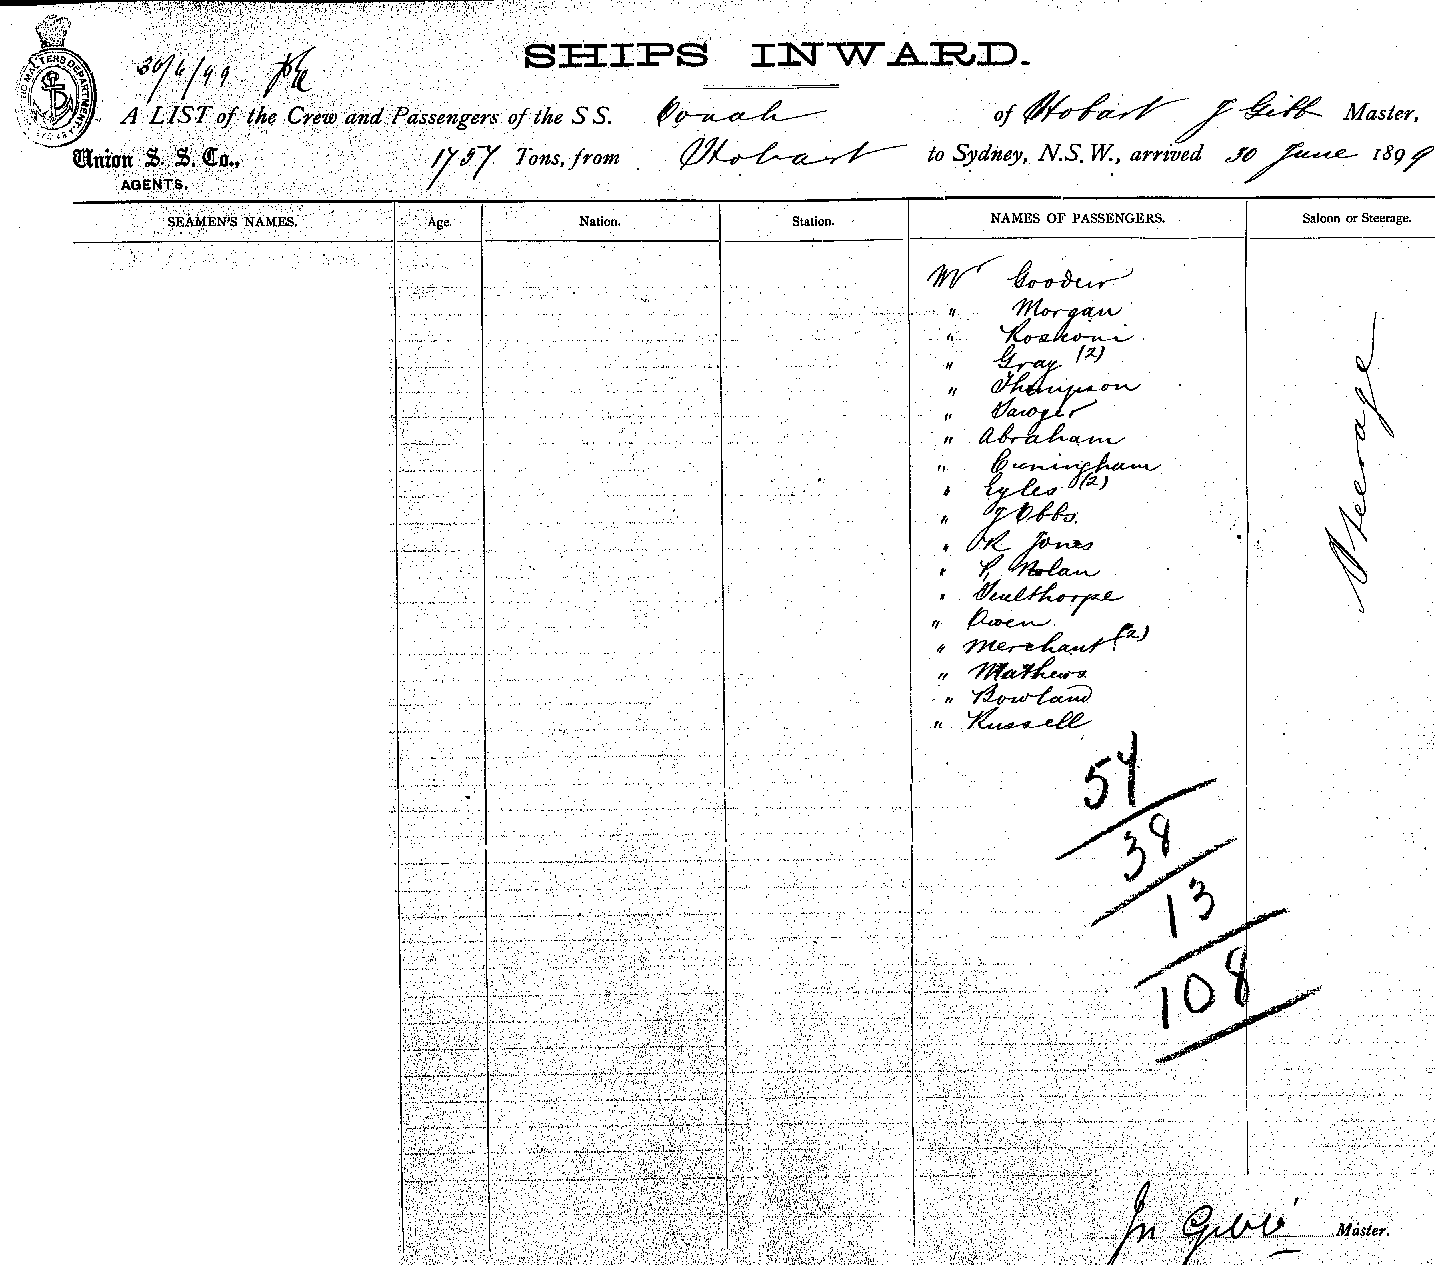 SHIPS INWARD.
30/6/99
A LIST of the Crew and Passengers of the S S. Oonah of Hobart J Gibb Master,
Union S. S. Co., 1757 Tons, from Hobart to Sydney, N.S.W., arrived 30 June 1899
AGENTS.
SEAMEN'S NAMES. Age. Nation. Station. NAMES OF PASSENGERS. Saloon or Steerage.
Mr Goodwin
" Morgan
"
" Gray (2)
" Thompson
" Sawyer
" Abraham
" Cuningham
" Eyles (2)
" J Obbs.
" R Jones
" P. Nolan
"
" Owen
" Merchant (2)
" Mathews
" Bowland
" Russell
Steerage
57
38
13
108
Jn Gibb Master.